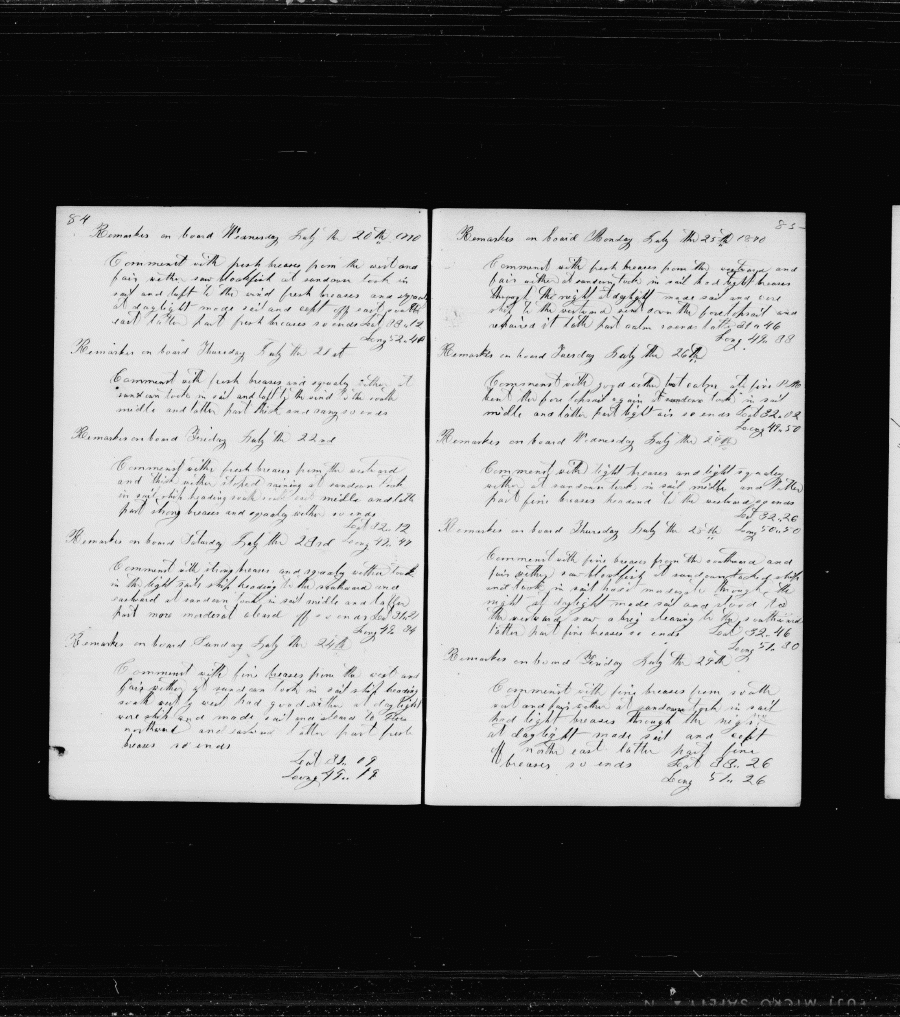 84
Remarks on board Wednesday July the 20th 1870
Comments with fresh breases from the west and
fair wither saw blackfish at sandown took in
sail and luft to the wind fresh breases and squaly
at daylight made sail and cept off east from the
east latter part fresh breases so ends Lat 33"12
Long 52"40
Remarks on board Thursday July the 21st
Comments with fresh breases and squaly wither at
sandown took in sail and luft to the wind to the south
midle and latter part thick and rany so ends
Remarks on board Friday July the 22nd
Comments with fresh breases from the westward
and thick wither raining at sandown took
in sail ship heading south midle and latter
part strong breases and squaly wither so ends
Lat 32"12
Remarks on board Saturday July the 23rd Long 49"44
Comments with strong breases and squaly wither took
in the light sails ship heading to the southward and
eastward at sandown took in sail midle and latter
part more moderat stood off so ends Lat 31"21
Long 49"34
Remarks on board Sunday July the 24th
Comments with fine breases from the west and
fair wither at sandown took in sail ship heading
south and by west had good wither at daylight
wore ship and made sail and steard to the
northward and eastward latter part fresh
breases so ends
Lat 31"09
Long 49"18
85
Remarks on board Monday July the 25th 1870
Comments with fresh breases from the westward and
fair wither at sandown took in sail had light breases
through the night at daylight made sail and wore
ship to the westward sent down the foretopsail and
repaired it latter part calm so ends Latt 31"46
Long 49"33
Remarks on board Tuesday July the 26th
Comments with good wither but calm at five PM
bent the foretopsail again at sandown took in sail
midle and latter part light air so ends Lat 32"02
Long 49"50
Remarks on board Wednesday July the 27th
Comments with light breases and light squaley
wither at sandown took in sail midle and latter
part fine breases headend to the westward so ends
Lat 32"26
Remarks on board Thursday July the 28th Long 50"50
Comments with fine breases from the southward and
fair wither saw blackfish at sandown tacked ship
and took in sail had moderate through the
night at daylight made sail and stood to
the westward saw a brig stearing to the southward
latter part fine breases so ends Lat 32"46
Long 51"30
Remarks on board Friday July the 29th
Comments with fine breases from south
east and fair wither at sandown took in sail
had light breases through the night
at daylight made sail and cept
off north east latter part fine
breases so ends Lat 33"26
Long 51"26